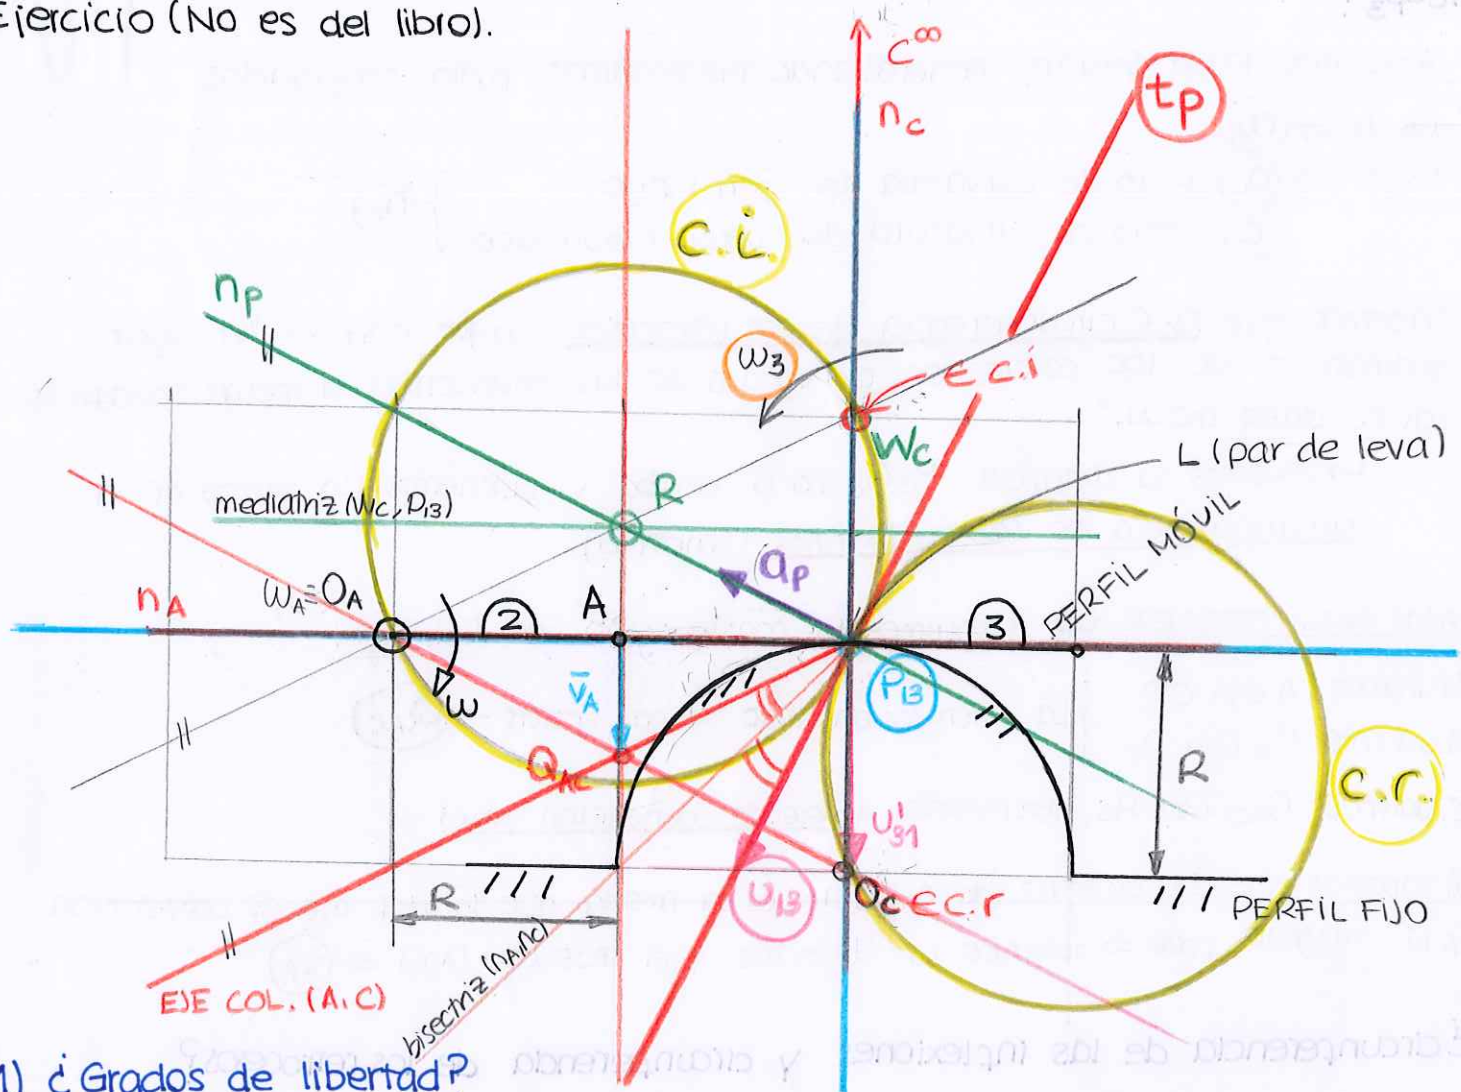 Ejercicio (No es del libro).
C∞
nc
tp
c.i.
np
ω3
∈ c.i
Wc
L (par de leva)
R
mediatriz (Wc, P13)
PERFIL MÓVIL
ap
nA
WA≡OA
2
A
3
v̄A
P13
ω
QAC
R
c.r.
u'31
U13
Oc ∈ c.r
R
PERFIL FIJO
EJE COL. (A,C)
bisectriz (nA,nc)
1) ¿Grados de libertad?